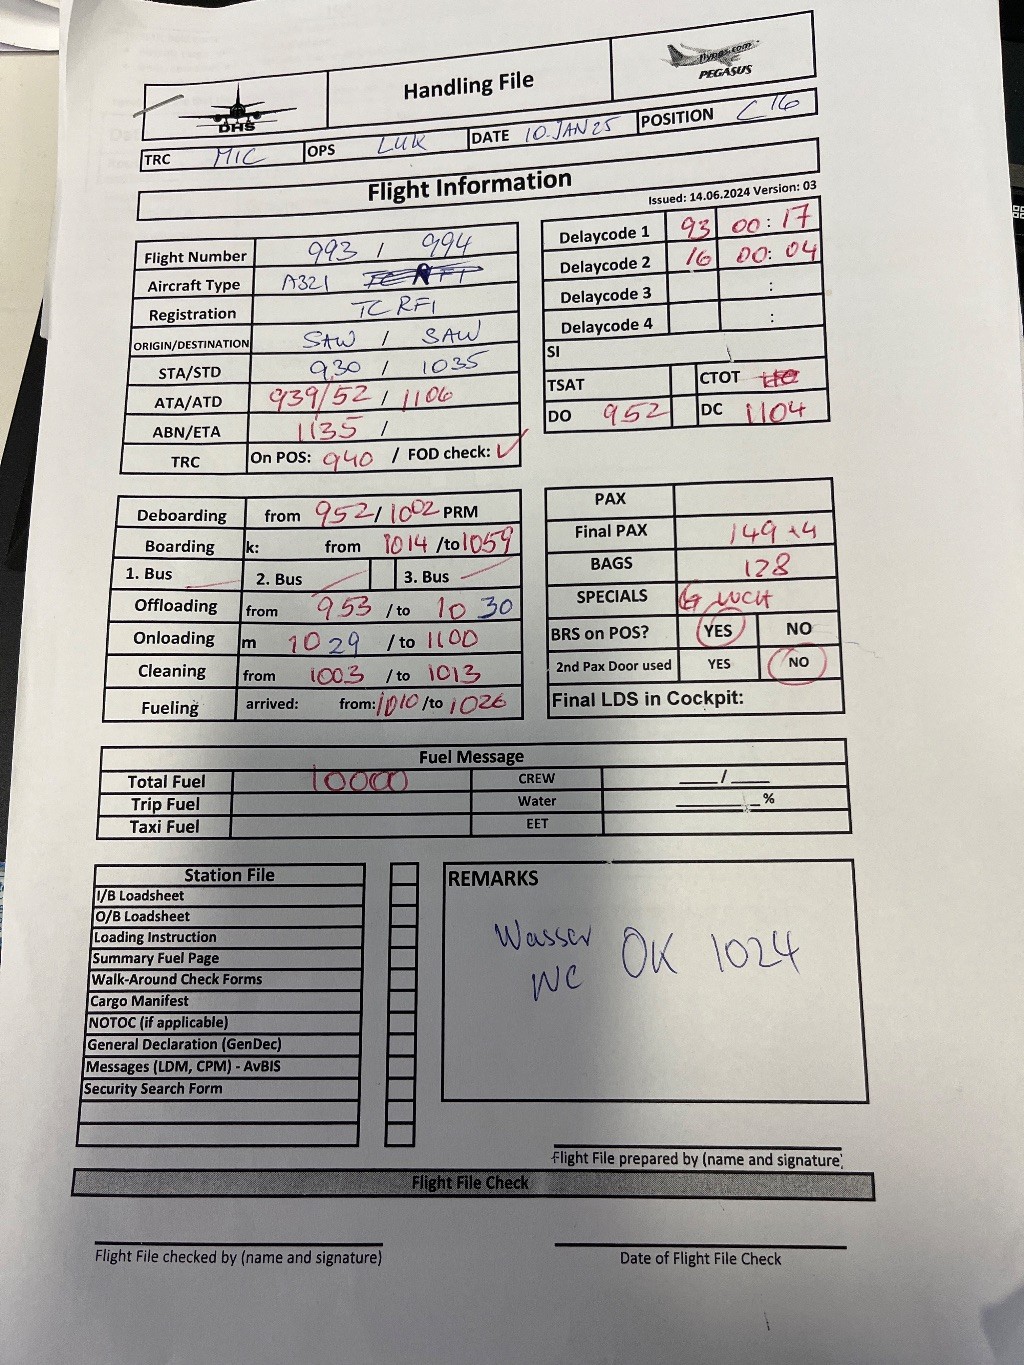 DHS
Handling File
flypgs.com
PEGASUS
TRC MIC OPS LUK DATE 10.JAN25 POSITION C16
Flight Information
Issued: 14.06.2024 Version: 03
Flight Number 993 / 994
Aircraft Type A321
Registration TC RFI
ORIGIN/DESTINATION SAW / SAW
STA/STD 930 / 1035
ATA/ATD 939/52 / 1106
ABN/ETA 1135 /
TRC On POS: 940 / FOD check:
Delaycode 1 93 00:17
Delaycode 2 16 00:04
Delaycode 3 :
Delaycode 4 :
SI
TSAT CTOT
DO 952 DC 1104
Deboarding from 952/1002 PRM
Boarding k: from 1014 /to 1059
1. Bus 2. Bus 3. Bus
Offloading from 953 /to 1030
Onloading m 1029 /to 1100
Cleaning from 1003 /to 1013
Fueling arrived: from: 1010 /to 1026
PAX
Final PAX 149+4
BAGS 128
SPECIALS WCH
BRS on POS? YES NO
2nd Pax Door used YES NO
Final LDS in Cockpit:
Fuel Message
Total Fuel 10000 CREW ___/___
Trip Fuel Water ______%
Taxi Fuel EET
Station File
I/B Loadsheet
O/B Loadsheet
Loading Instruction
Summary Fuel Page
Walk-Around Check Forms
Cargo Manifest
NOTOC (if applicable)
General Declaration (GenDec)
Messages (LDM, CPM) - AvBIS
Security Search Form
REMARKS
Wasser OK 1024
WC
Flight File prepared by (name and signature)
Flight File Check
Flight File checked by (name and signature)
Date of Flight File Check